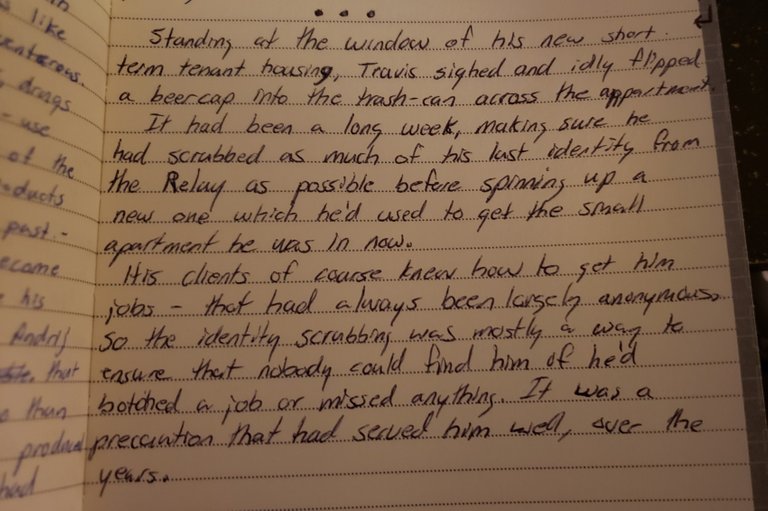 • • •
Standing at the window of his new short
term tenant housing, Travis sighed and idly flipped
a beercap into the trash-can across the appartment.
It had been a long week, making sure he
had scrubbed as much of his last identity from
the Relay as possible before spinning up a
new one which he'd used to get the small
apartment he was in now.
His clients of course knew how to get him
jobs - that had always been largely anonymous,
so the identity scrubbing was mostly a way to
ensure that nobody could find him of he'd
botched a job or missed anything. It was a
precaution that had served him well, over the
years.
like
drugs
- use
of the
past -
his
Andrij
that
than
had